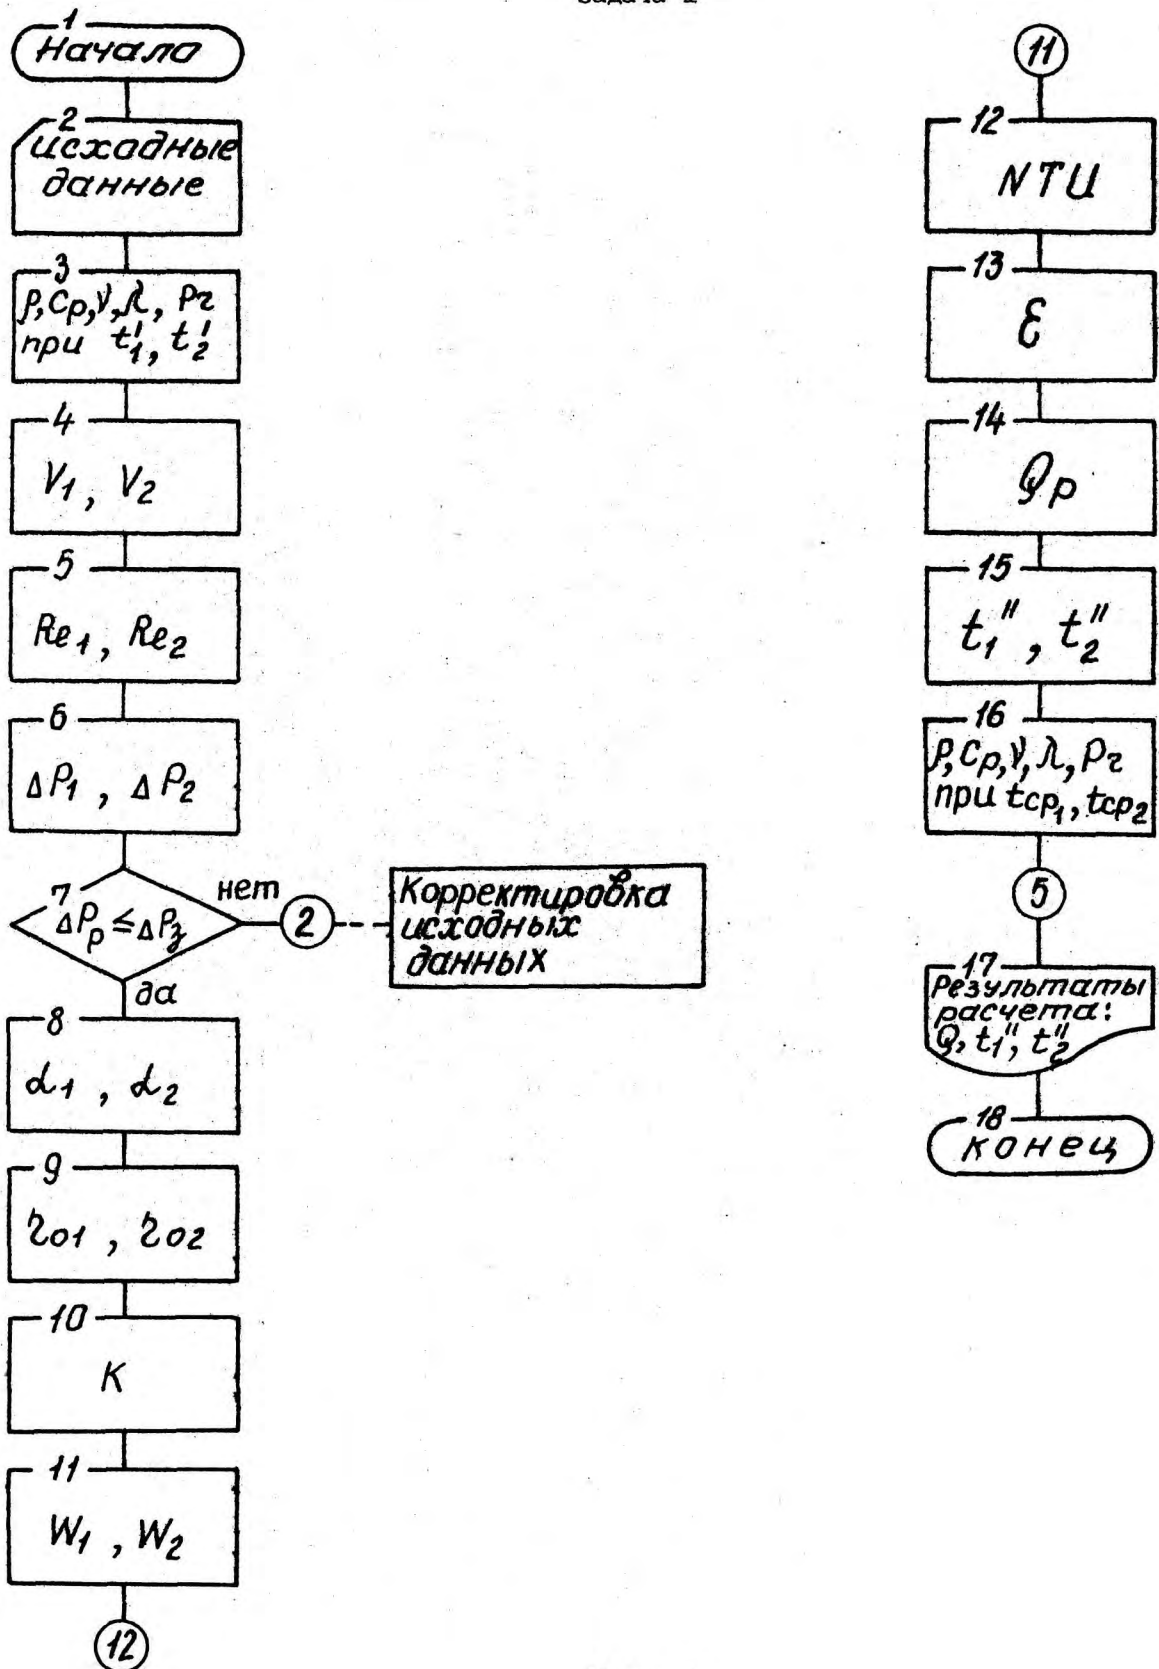 1
Начало
2
исходные
данные
3
ρ, Cp, ν, λ, Pr
при t₁', t₂'
4
V₁, V₂
5
Re₁, Re₂
6
ΔP₁, ΔP₂
7
ΔPр ≤ ΔPз
нет
2
Корректировка
исходных
данных
да
8
α₁, α₂
9
η₀₁, η₀₂
10
K
11
W₁, W₂
12
11
12
NTU
13
ε
14
Qр
15
t₁'', t₂''
16
ρ, Cp, ν, λ, Pr
при tср₁, tср₂
5
17
Результаты
расчета:
Q, t₁'', t₂''
18
конец